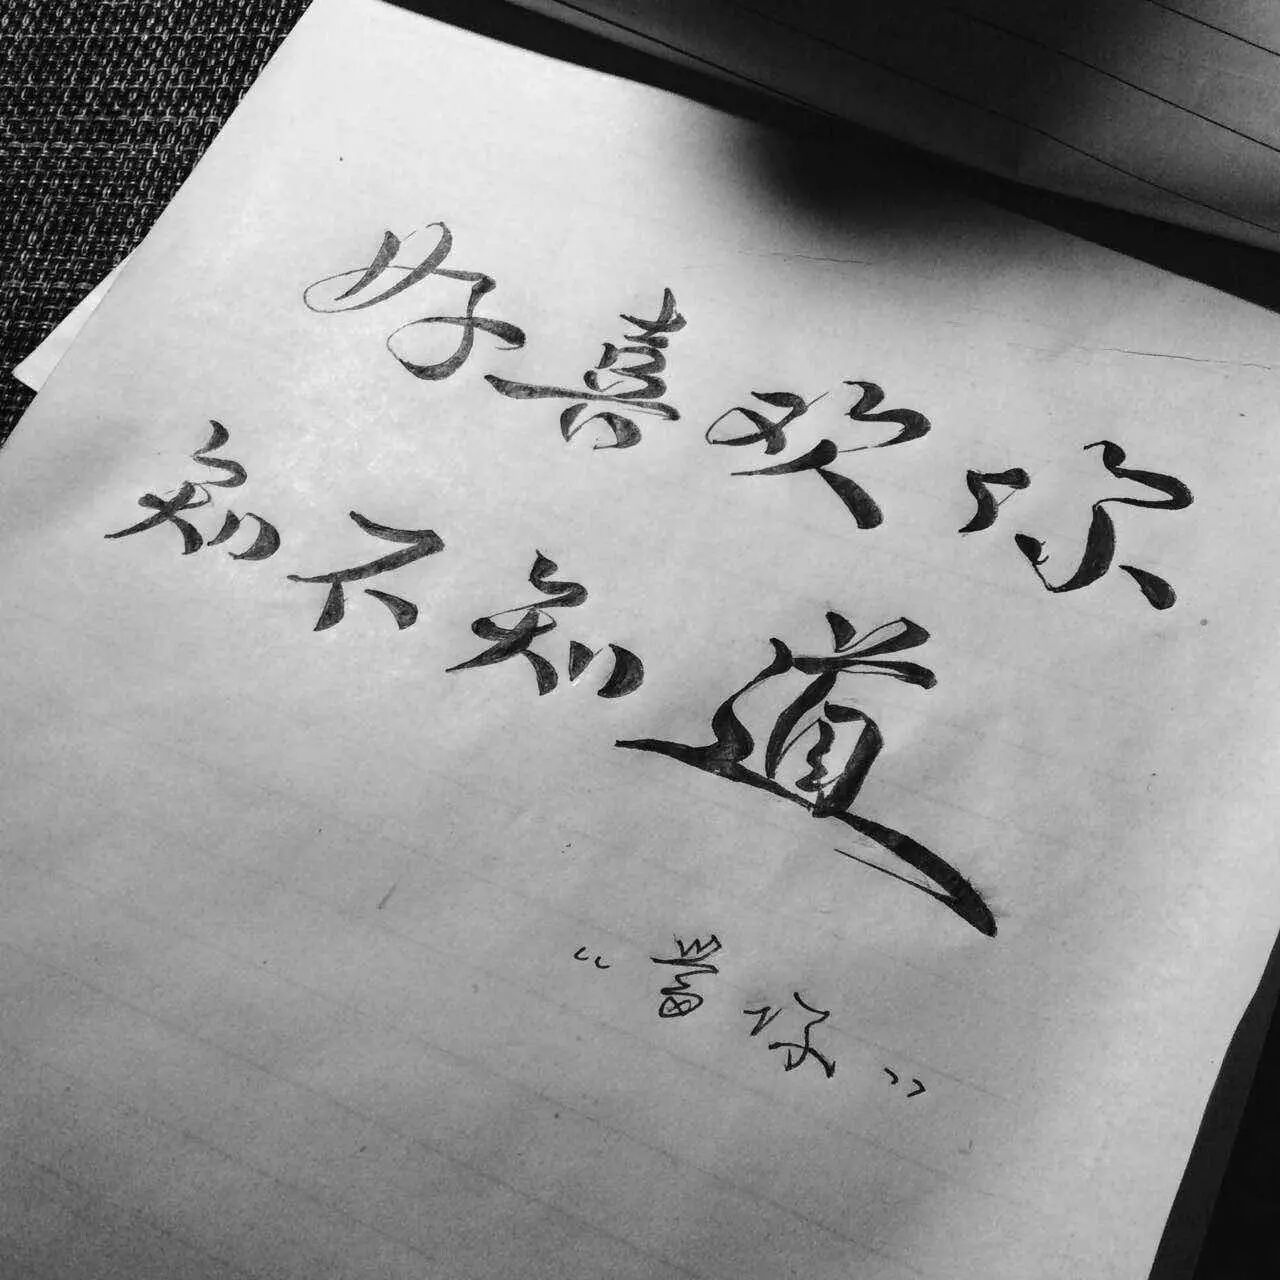 好喜欢你
知不知道
“當你”